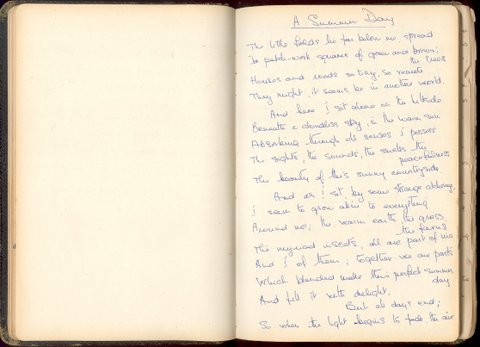 A Summer Day
The little fields lie far below me spread
In patch-work squares of green and brown;
the trees
Houses and roads so tiny, so remote
They might, it seems, be in another world.
And here I sit alone on the hillside
Beneath a cloudless sky, in the warm sun
Absorbing through all senses I possess
The sights, the sounds, the smells the
peacefulness
The beauty of this sunny countryside.
And as I sit by some strange alchemy,
I seem to grow akin to everything
Around me; the warm earth the grass
the ferns
The myriad insects, all are part of me
And I of them; together we are parts
Which blended make this perfect summer
day
And fill it with delight.
But all days end;
So when the light begins to fade the air